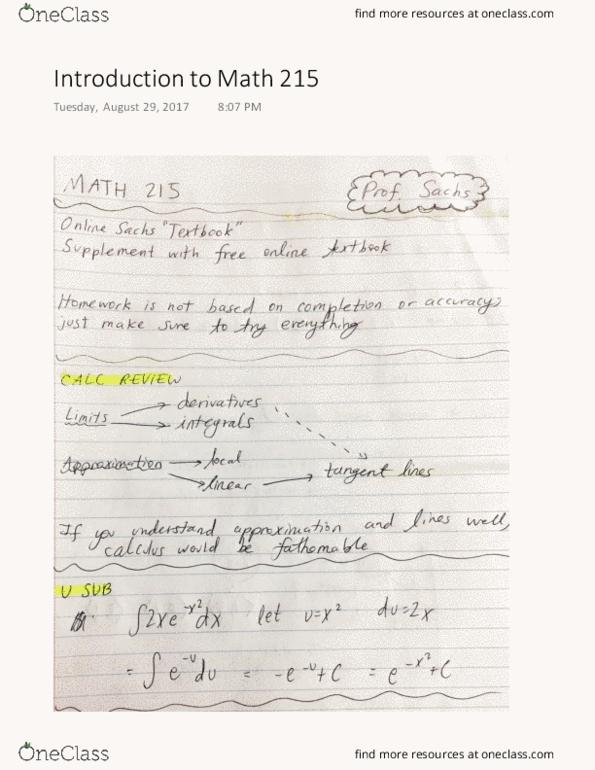 OneClass
find more resources at oneclass.com
Introduction to Math 215
Tuesday, August 29, 2017 8:07 PM
MATH 215
Prof. Sachs
Online Sachs "Textbook"
Supplement with free online textbook
Homework is not based on completion or accuracy,
just make sure to try everything
CALC REVIEW
Limits → derivatives
→ integrals
Approximation → local
→ linear → tangent lines
If you understand approximation and lines well,
calculus would be fathomable
U SUB
∫2xe^-x² dx let u=x² du=2x
= ∫e^-u du = -e^-u+C = e^-x²+C
OneClass
find more resources at oneclass.com